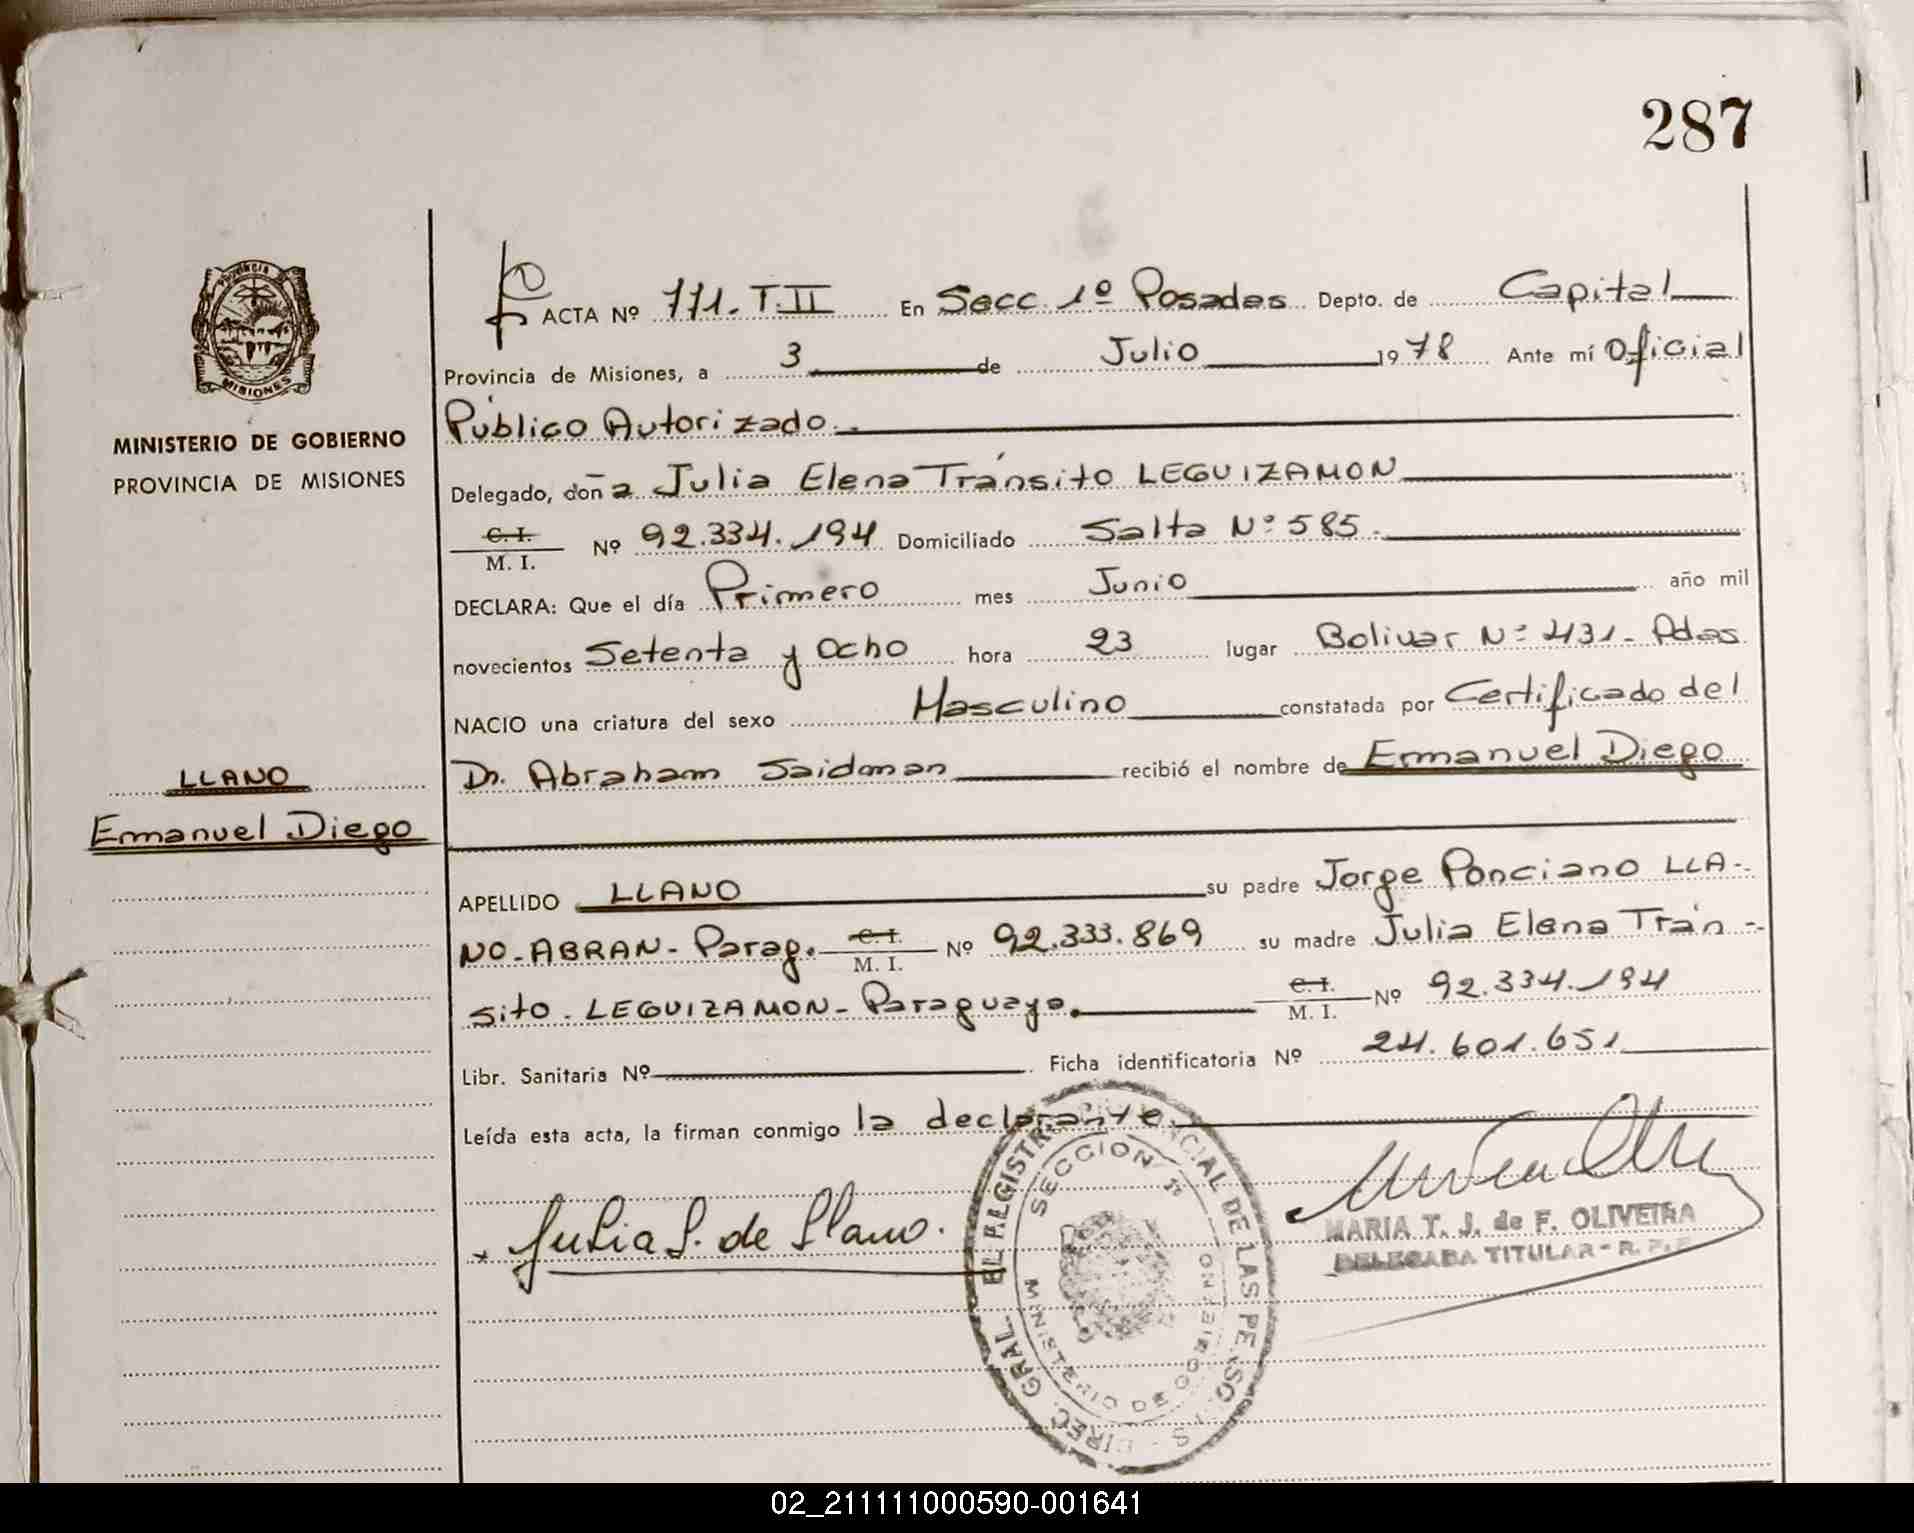 287
PROVINCIA DE
MISIONES
MINISTERIO DE GOBIERNO
PROVINCIA DE MISIONES
LLANO
Emanuel Diego
ACTA Nº 111. T.II En Secc. 1º Posadas Depto. de Capital
Provincia de Misiones, a 3 de Julio 1978 Ante mí Oficial
Público Autorizado.
Delegado, doña Julia Elena Tránsito LEGUIZAMON
C. I.
M. I. Nº 92.334.194 Domiciliado Salta Nº 585.
DECLARA: Que el día Primero mes Junio año mil
novecientos Setenta y Ocho hora 23 lugar Bolivar Nº 431- Pdas.
NACIO una criatura del sexo Masculino constatada por Certificado del
Dr. Abraham Saidman recibió el nombre de Emanuel Diego
APELLIDO LLANO su padre Jorge Ponciano LLA-
NO-ABRAN- Parag. C. I. M. I. Nº 92.333.869 su madre Julia Elena Trán-
sito. LEGUIZAMON- Paraguaya. C. I. M. I. Nº 92.334.194
Libr. Sanitaria Nº Ficha identificatoria Nº 24.601.651
Leída esta acta, la firman conmigo la declarante
Julia L. de Llano.
DIREC. GRAL. DEL REGISTRO PROVINCIAL DE LAS PERSONAS
SECCION 1º
MINISTERIO DE GOBIERNO
MARIA T. J. de F. OLIVEIRA
DELEGADA TITULAR - R. P. P.
02_211111000590-001641